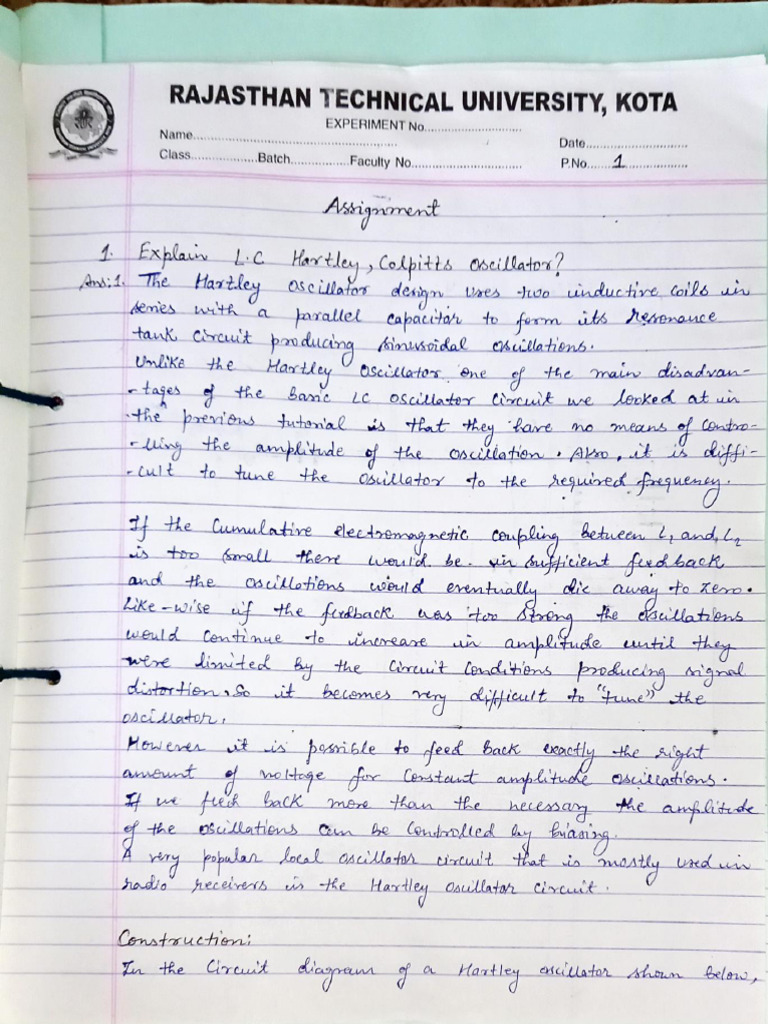 RAJASTHAN TECHNICAL UNIVERSITY, KOTA
EXPERIMENT No..............................
Name.................................................................
Date..............................
Class....................Batch..................Faculty No..................................
P.No........1....................
Assignment
1. Explain L.C Hartley, Colpitts oscillator?
Ans:1. The Hartley oscillator design uses two inductive coils in
series with a parallel capacitor to form its resonance
tank circuit producing sinusoidal oscillations.
Unlike the Hartley Oscillator one of the main disadvan-
-tages of the basic LC oscillator circuit we looked at in
-the previous tutorial is that they have no means of contro-
-lling the amplitude of the oscillation. Also, it is diffi-
-cult to tune the oscillator to the required frequency.
If the Cumulative electromagnetic coupling between L1 and L2
is too small there would be in sufficient feedback
and the oscillations would eventually die away to zero.
Like-wise if the feedback was too strong the oscillations
would continue to increase in amplitude until they
were limited by the circuit conditions producing signal
distortion. So it becomes very difficult to "tune" the
oscillator.
However it is possible to feed back exactly the right
amount of voltage for constant amplitude oscillations.
If we feed back more than the necessary the amplitude
of the oscillations can be controlled by biasing.
A very popular local oscillator circuit that is mostly used in
radio receivers is the Hartley oscillator circuit.
Construction:
In the Circuit diagram of a Hartley oscillator shown below,